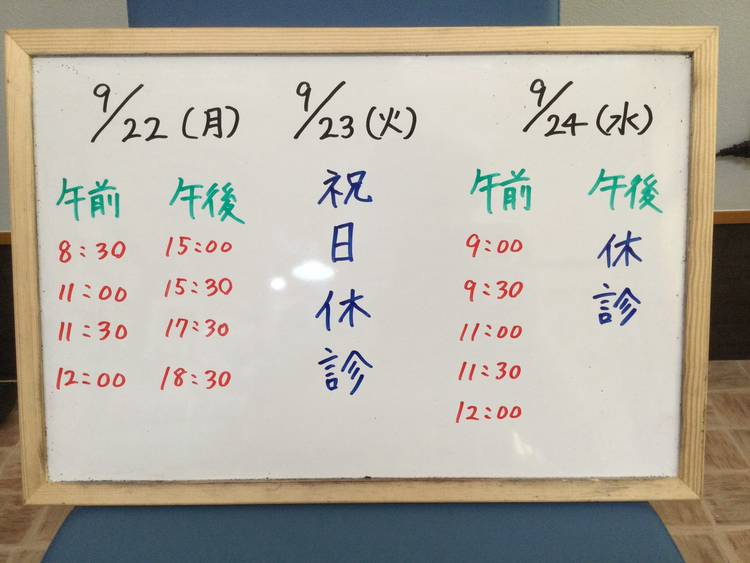 9/22(月)
午前 午後
8:30 15:00
11:00 15:30
11:30 17:30
12:00 18:30
9/23(火)
祝日休診
9/24(水)
午前 午後
9:00 休診
9:30
11:00
11:30
12:00